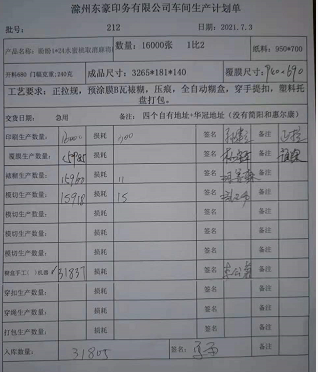 滁州东豪印务有限公司车间生产计划单
批号: 212 日期: 2021.7.3
产品名称: 1*24水蜜桃 数量: 16000张 1比2 纸料: 950*700
开料680 门幅克重:240克 成品尺寸: 3265*181*140 覆膜尺寸: 960-690
工艺要求: 正拉规,预涂膜B瓦裱糊,压痕,全自动糊盒,穿手提扣,塑料托盘打包。
交货日期: 急用 备注: 四个自有地址+华冠地址(没有简阳和惠尔康)
印刷生产数量: 16000 损耗 签名 备注
覆膜生产数量: 15985 损耗 签名 备注
裱糊生产数量: 损耗 11 签名 备注
模切生产数量: 损耗 15 签名 备注
模切生产数量: 损耗 签名 备注
模切生产数量: 损耗 签名 备注
模切生产数量: 损耗 签名 备注
糊盒手工: )机器 31837 损耗 签名 备注
穿扣生产数量: 损耗 签名 备注
穿绳生产数量: 损耗 签名 备注
打包生产数量: 损耗 签名 备注
入库数量: 31805 签名: